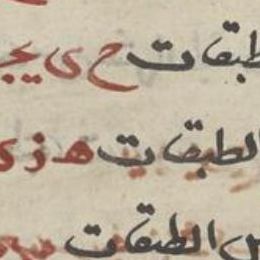 طبقات ح ى يج
الطبقات ه ز ى
الطبقات